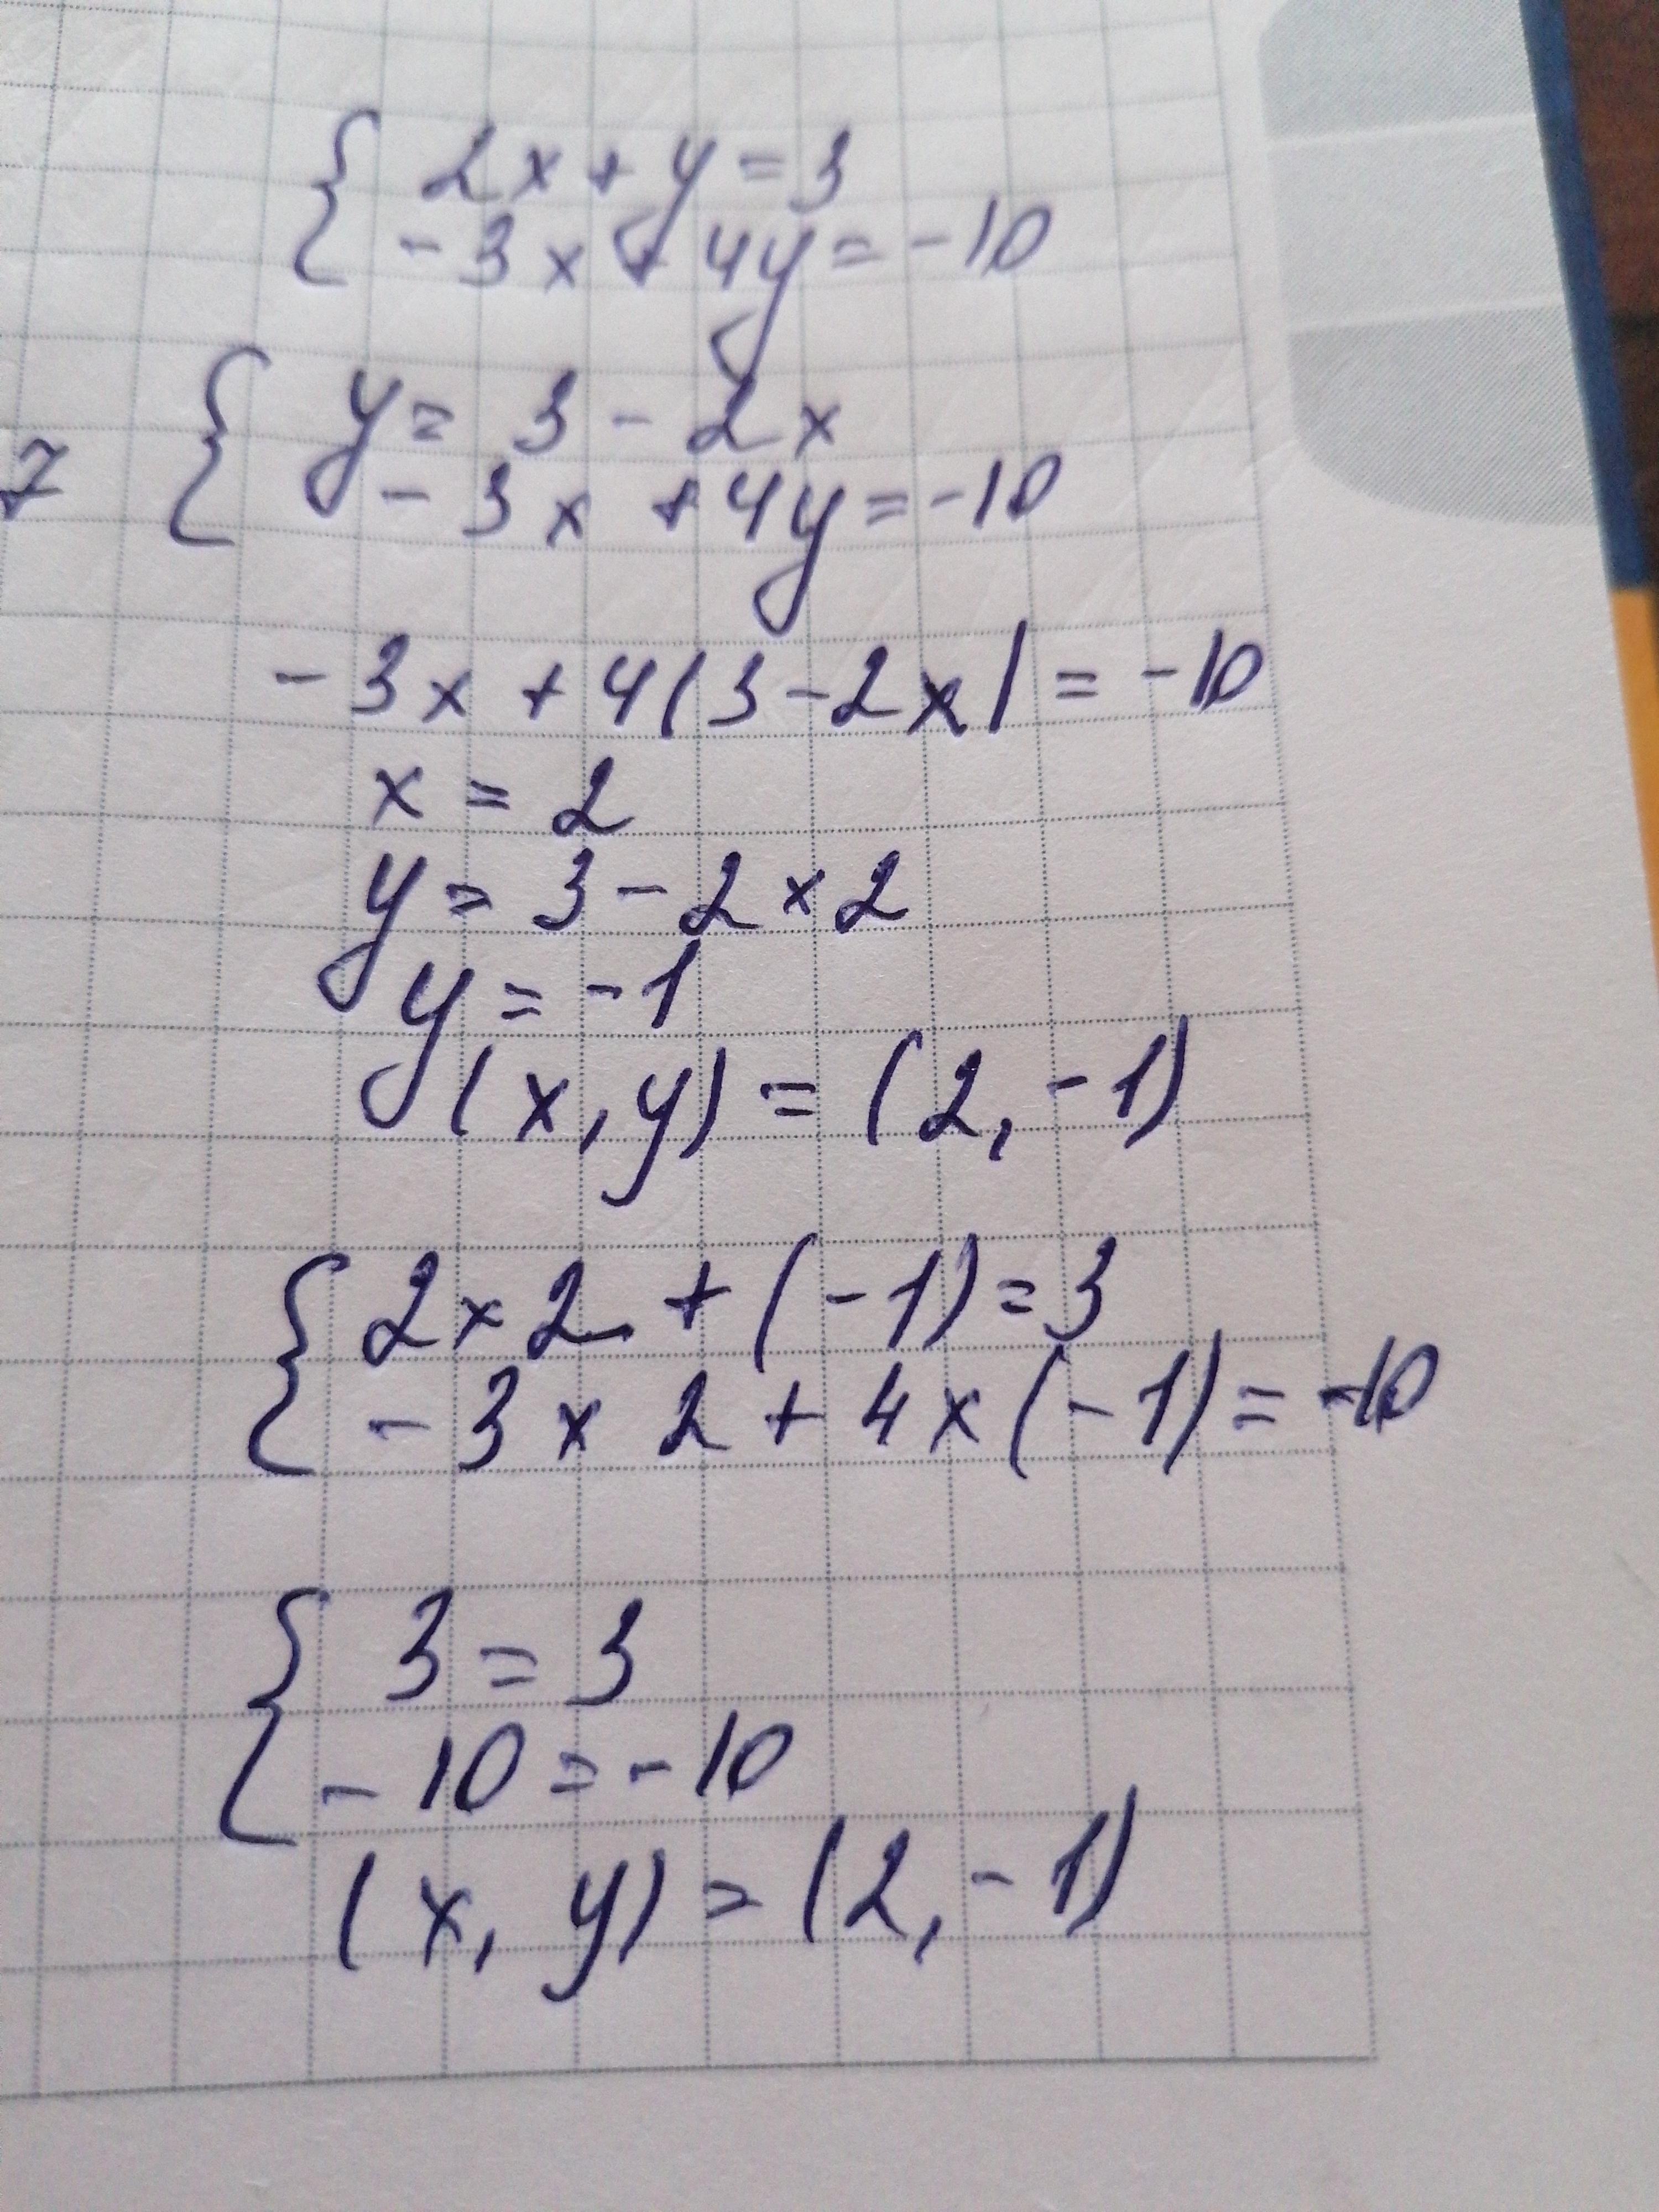 { 2x + y = 3
- 3x + 4y = -10
7 { y = 3 - 2x
- 3x + 4y = -10
- 3x + 4(3-2x) = -10
x = 2
y = 3 - 2 × 2
y = -1
(x, y) = (2, -1)
{ 2 × 2 + (-1) = 3
- 3 × 2 + 4 × (-1) = -10
{ 3 = 3
- 10 = -10
(x, y) = (2, -1)